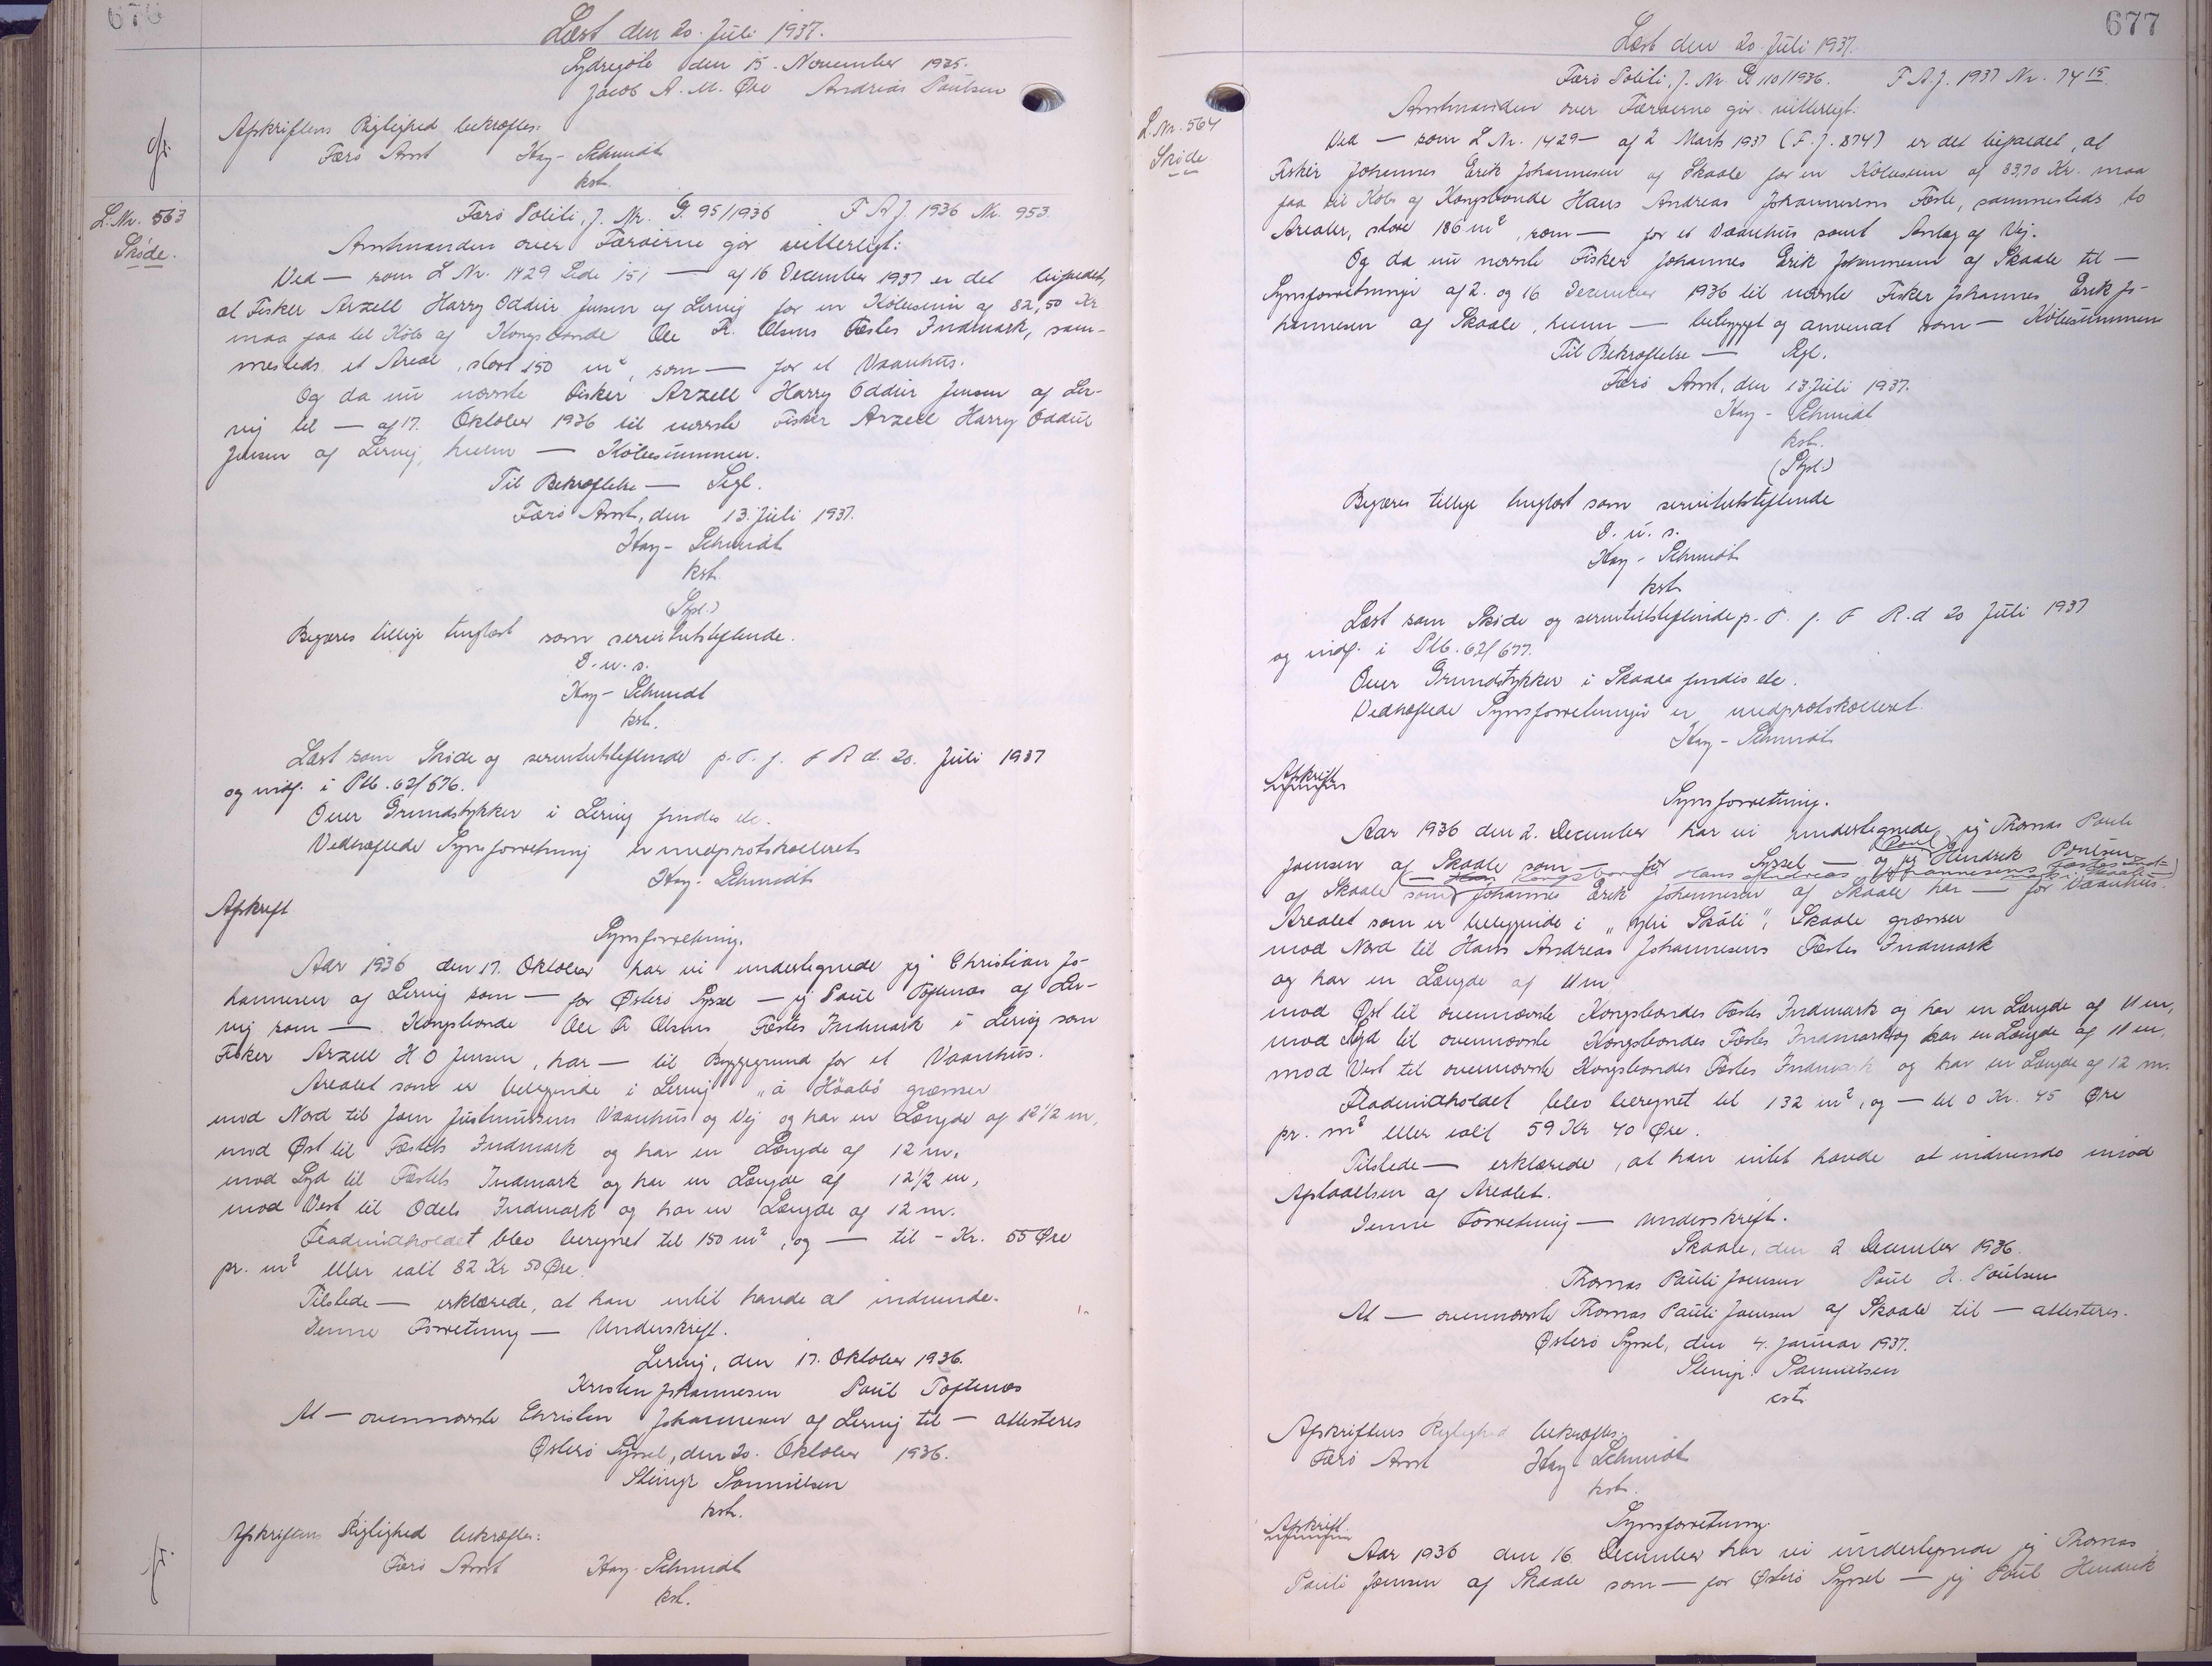 676
Læst den 20. Juli 1937.
Sydregöte den 15. November 1935.
Jacob A. M. Øre Andreas Poulsen
Afskriftens Rigtighed bekræftes:
Færø Amt Hay-Schmidt
kst.
L. Nr. 563
Skøde.
Færø Politi, J. Nr. G. 95/1936 F A J. 1936 Nr. 953.
Amtmanden over Færøerne gør vitterligt:
Ved — som L Nr. 1429 Side 151 — af 16 December 1937 er det bifaldet,
at Fisker Arzell Harry Oddur Jensen af Lervig for en Købesum af 82,50 Kr
maa faa til Køb af Kongsbonde Ole R. Olsens Fæstes Indmark, sam-
mesteds et Areal, stort 150 m², som — for et Vaanhus.
Og da nu nævnte Fisker Arzell Harry Oddur Jensen af Ler-
vig til — af 17. Oktober 1936 til nævnte Fisker Arzell Harry Oddur
Jensen af Lervig, hvem — Købesummen.
Til Bekræftelse — Segl.
Færø Amt, den 13. Juli 1937.
Hay-Schmidt
kst.
(Stpl.)
Begæres tillige tinglæst som servitutstiftende.
D. u. s.
Hay-Schmidt
kst.
Læst som Skøde og servitutstiftende p. T. f. F R d. 20. Juli 1937
og indf. i Ptb. 62/676.
Over Grundstykker i Lervig findes etc.
Vedhæftede Synsforretning er medprotokolleret
Hay-Schmidt
Afskrift
Synsforretning.
Aar 1936 den 17. Oktober har vi undertegnede jeg Christian Jo-
hannesen af Lervig som — for Østerø Syssel — jeg Poul Toftenæs af Ler-
vig som — Kongsbonde Ole R Olsens Fæstes Indmark i Lervig som
Fisker Arzell H O Jensen, har — til Byggegrund for et Vaanhus.
Arealet som er beliggende i Lervig "á Höabö grænser
mod Nord til Joen Justinussens Vaanhus og Vej og har en Længde af 12 1/2 m,
mod Øst til Fæstets Indmark og har en Længde af 12 m.
mod Syd til Fæstets Indmark og har en Længde af 12 1/2 m,
mod Vest til Odels Indmark og har en Længde af 12 m.
Fladeindholdet blev beregnet til 150 m², og — til - Kr. 55 Øre
pr. m² eller ialt 82 Kr 50 Øre.
Tilstede — erklærede, at han intet havde at indvende.
Denne Forretning — Underskrift.
Lervig, den 17. Oktober 1936.
Kristen Johannesen Poul Toftenæs
At — ovennævnte Christen Johannesen af Lervig til — attesteres
Østerø Syssel, den 20. Oktober 1936.
Sleingr Samuelsen
kst.
Afskriftens Rigtighed bekræftes:
Færø Amt Hay-Schmidt
kst.
677
Læst den 20. Juli 1937.
L. Nr. 564
Skøde
Færø Politi, J. Nr. G 110/1936. F A J. 1937 Nr. 7415
Amtmanden over Færøerne gør vitterligt:
Ved — som L Nr. 1429 — af 2 Marts 1937 (F. J. 874) er det bifaldet, at
Fisker Johannes Erik Johannesen af Skaale for en Købesum af 83,70 Kr. maa
faa til Køb af Kongsbonde Hans Andreas Johannesens Fæste, sammesteds to
Arealer, store 186 m², som — for et Vaanhus samt Anlæg af Vej.
Og da nu nævnte Fisker Johannes Erik Johannesen af Skaale til —
Synsforretninger af 2. og 16 December 1936 til nævnte Fisker Johannes Erik Jo-
hannesen af Skaale, hvem — bebygget og anvendt som — Købesummen
Til Bekræftelse — Segl.
Færø Amt, den 13 Juli 1937.
Hay-Schmidt
kst.
(Stpl.)
Begæres tillige tinglæst som servitutstiftende
D. u. s.
Hay-Schmidt
kst
Læst som Skøde og servitutstiftende p. T. f. F R. d 20 Juli 1937
og indf. i Ptb. 62/677.
Over Grundstykker i Skaale findes etc.
Vedhæftede Synsforretninger er medprotokolleret.
Hay-Schmidt
Afskrift
Synsforretning.
Aar 1936 den 2. December har vi undertegnede jeg Thomas Pauli
Joensen af Skaale som — for Syssel — og jeg (Poul) Hendrik Poulsen
(— Kongsbonde Hans Andreas Johannesens Fæstes Ind-
mark i Skaale —)
af Skaale som Johannes Erik Johannesen af Skaale har — for Vaanhus.
Arealet som er beliggende i "Ytri Skáli", Skaale grænser
mod Nord til Hans Andreas Johannesens Fæstes Indmark
og har en Længde af 11 m
mod Øst til ovennævnte Kongsbondes Fæstes Indmark og har en Længde af 11 m,
mod Syd til ovennævnte Kongsbondes Fæstes Indmark og har en Længde af 11 m,
mod Vest til ovennævnte Kongsbondes Fæstes Indmark og har en Længde af 12 m.
Fladeindholdet blev beregnet til 132 m², og — til 0 Kr. 45 Øre
pr. m² eller ialt 59 Kr 40 Øre.
Tilstede — erklærede, at han intet havde at indvende imod
Afstaaelsen af Arealet.
Denne Forretning — Underskrift.
Skaale, den 2 December 1936.
Thomas Pauli Joensen Poul H. Poulsen
At — ovennævnte Thomas Pauli Joensen af Skaale til — attesteres.
Østerø Syssel, den 4. Januar 1937.
Sleingr. Samuelsen
cst.
Afskriftens Rigtighed bekræftes.
Færø Amt Hay-Schmidt
kst.
Afskrift.
Synsforretning.
Aar 1936 den 16. December har vi undertegnede jeg Thomas
Pauli Joensen af Skaale som — for Østerø Syssel — jeg Poul Hendrik